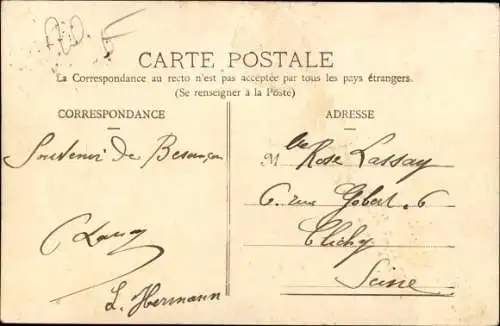 CARTE POSTALE
La Correspondance au recto n'est pas acceptée par tous les pays étrangers.
(Se renseigner à la Poste)
CORRESPONDANCE
Souvenir de Besançon
L. Hermann
ADRESSE
Mlle Rose Lassay
6. rue Gobert. 6
Clichy
Seine